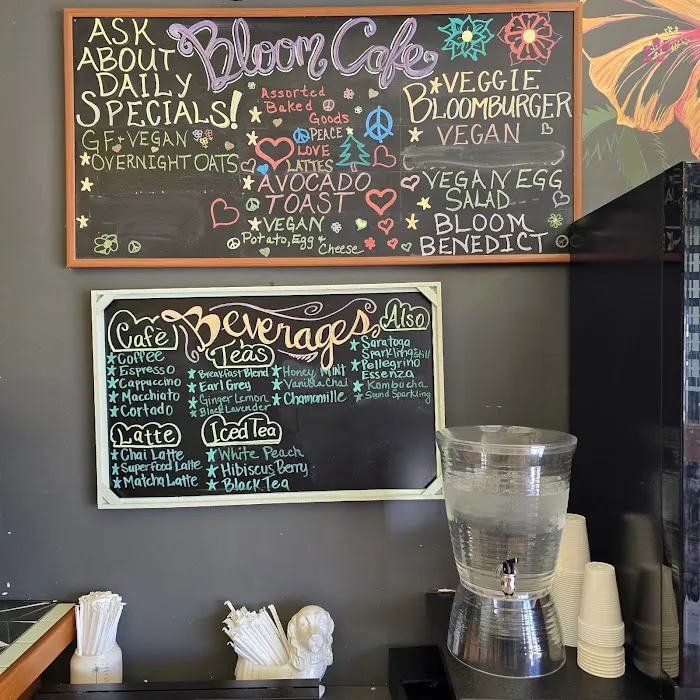 ASK
ABOUT
DAILY
SPECIALS!
GF+VEGAN
OVERNIGHT OATS
Bloom Cafe
Assorted
Baked
Goods
PEACE
LOVE
LATTES
AVOCADO
TOAST
VEGAN
Potato, Egg &
Cheese
VEGGIE
BLOOMBURGER
VEGAN
VEGAN EGG
SALAD
BLOOM
BENEDICT
Beverages
Café
Coffee
Espresso
Cappuccino
Macchiato
Cortado
Latte
Chai Latte
Superfood Latte
Matcha Latte
Teas
Breakfast Blend
Earl Grey
Ginger Lemon
Black Lavender
Honey MINT
Vanilla Chai
Chamomille
Iced Tea
White Peach
Hibiscus Berry
Black Tea
Also
Saratoga
Sparkling Still
Pellegrino
Essenza
Kombucha
Sound Sparkling